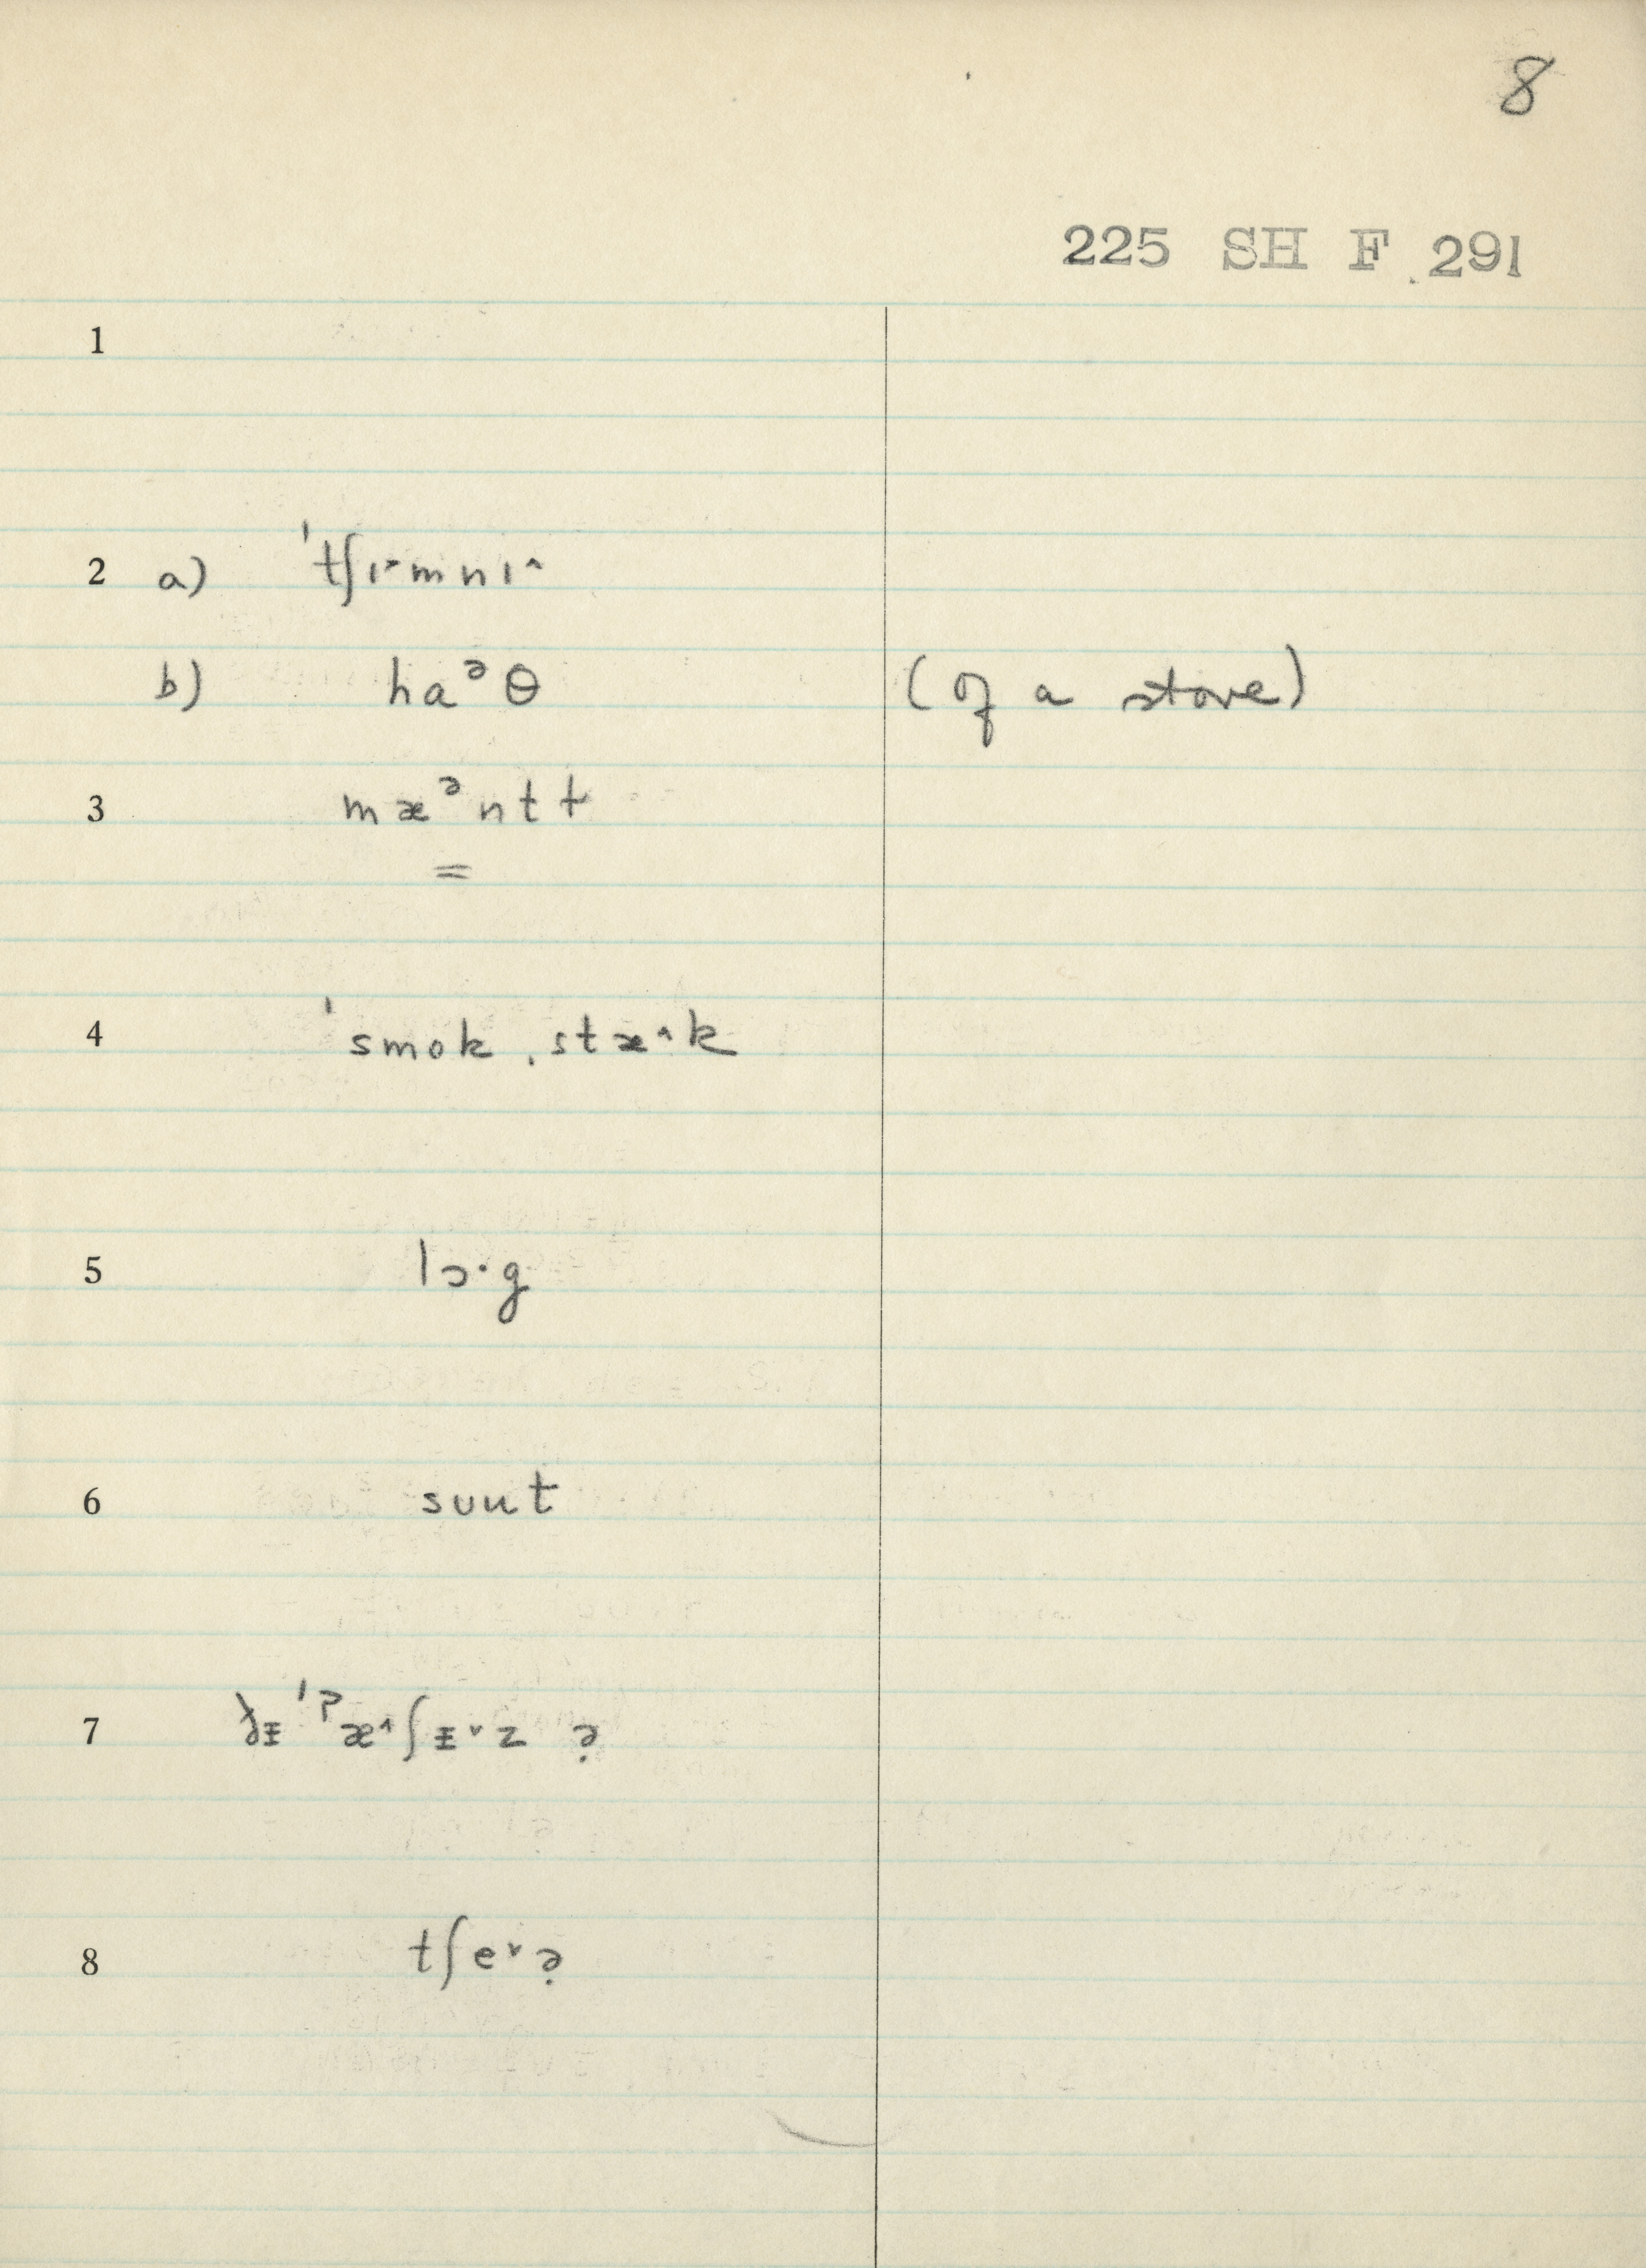 8
225 SH F 291
1
2 a) ˈtʃɪ˃mnɪ˄
b) haᵊθ (of a stove)
3 mæᵊntt
=
4 ˈsmok ˌstæ˄k
5 lɔ·g
6 sʊut
7 ðᵻ ˈˀæ˄ʃᵻ˅z ə̣
8 tʃe˅ə̣